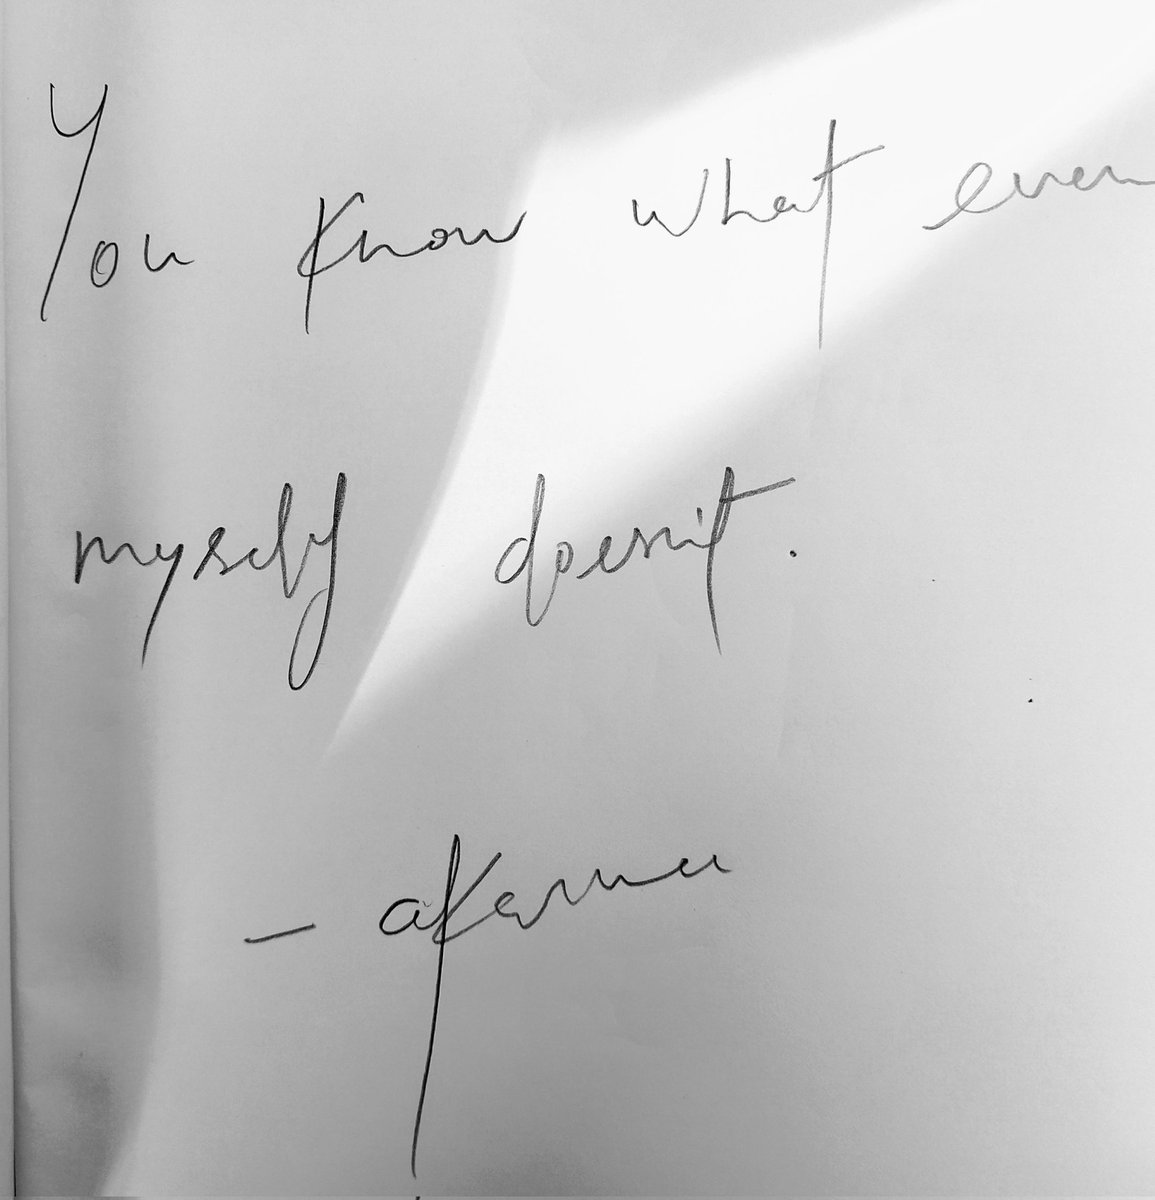 You know what even
myself doesn't.